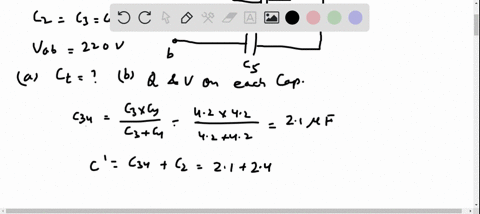 C₂ = C₃ =
Vab = 220 V
b
C5
(a) Ct = ? (b) Q & V on each Cap.
C34 = C3 × C4 / C3 + C4 = 4.2 × 4.2 / 4.2 + 4.2 = 2.1 μF
C' = C34 + C2 = 2.1 + 2.4